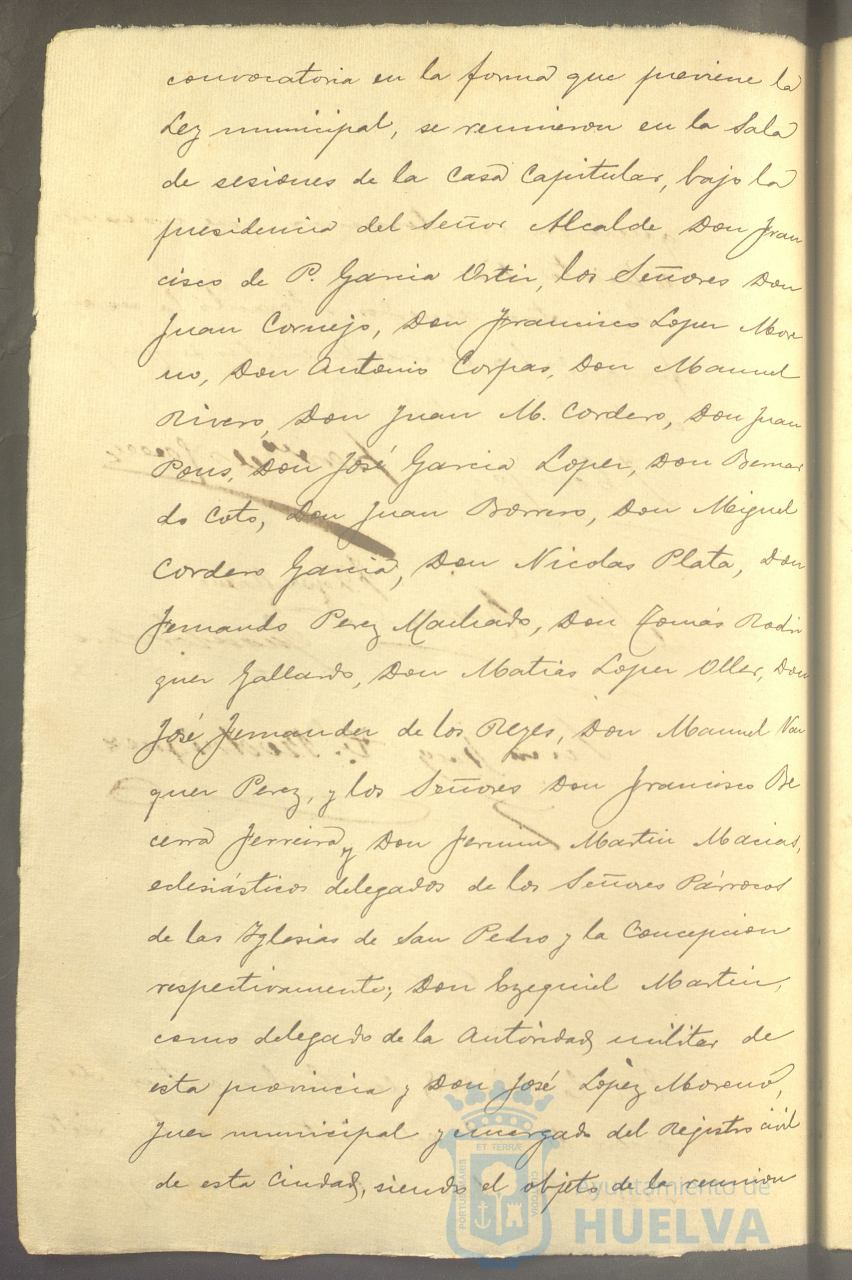 convocatoria en la forma que previene la
Ley municipal, se reunieron en la Sala
de sesiones de la Casa Capitular, bajo la
presidencia del Señor Alcalde Don Fran
cisco de P. Garcia Ortiz, los Señores Don
Juan Cornejo, Don Francisco Lopez More
no, Don Antonio Corpas, Don Manuel
Rivero, Don Juan M. Cordero, Don Juan
Pons, Don José Garcia Lopez, Don Bernar
do Coto, Don Juan Borrero, Don Miguel
Cordero Garcia, Don Nicolas Plata, Don
Fernando Perez Machado, Don Tomás Rodri
guez Gallardo, Don Matias Lopez Oller, Don
José Fernandez de los Reyes, Don Manuel Vaz
quez Perez, y los Señores Don Francisco Be
cerra Ferreira y Don Fermin Martin Macias,
eclesiásticos delegados de los Señores Párrocos
de las Yglesias de San Pedro y la Concepcion
respectivamente; Don Ezequiel Martin,
como delegado de la Autóridad militar de
esta provincia y Don José Lopez Moreno,
Juez municipal y encargado del Registro civil
de esta Ciudad, siendo el objeto de la reunion
ET TERRÆ
PORTUS MARIS
CUSTODIA
Ayuntamiento de
HUELVA